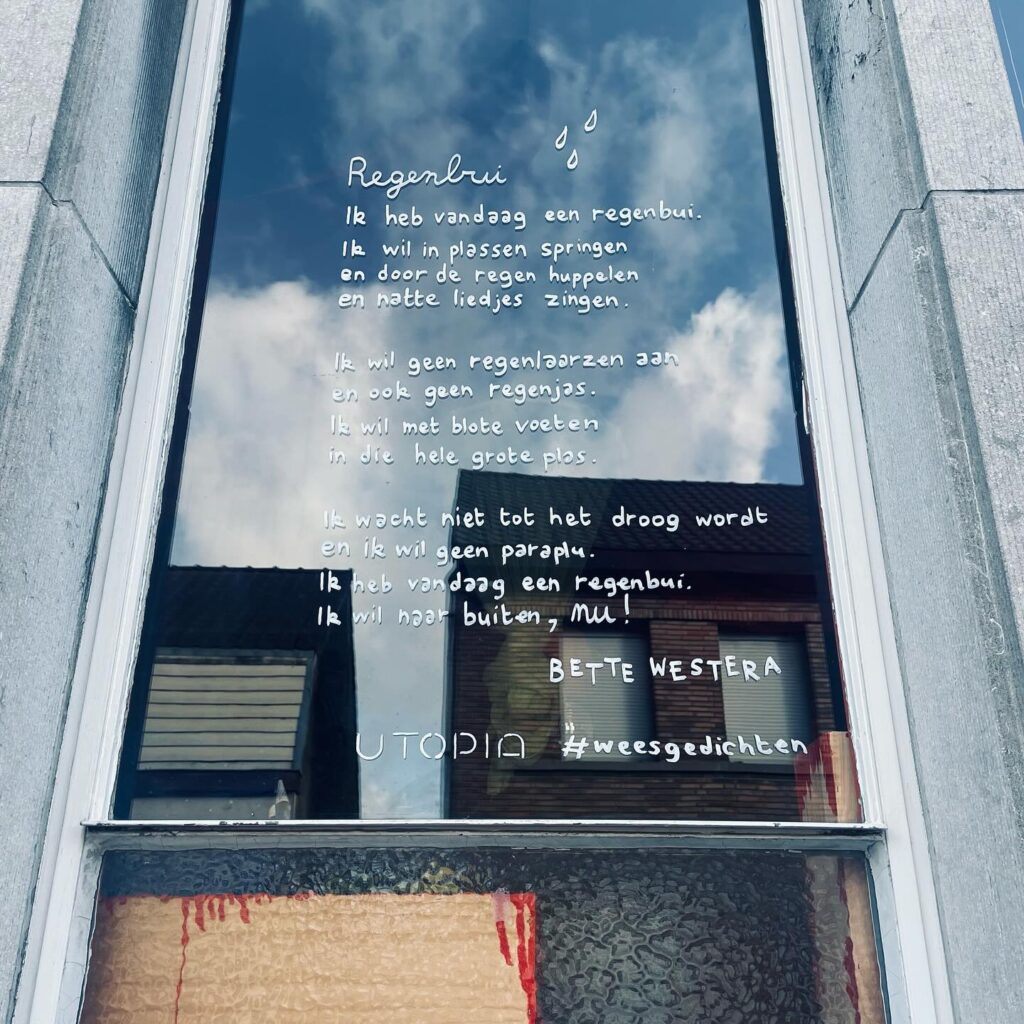 Regenbui
Ik heb vandaag een regenbui.
Ik wil in plassen springen
en door de regen huppelen
en natte liedjes zingen.
Ik wil geen regenlaarzen aan
en ook geen regenjas.
Ik wil met blote voeten
in die hele grote plas.
Ik wacht niet tot het droog wordt
en ik wil geen paraplu.
Ik heb vandaag een regenbui.
Ik wil naar buiten, nu!
BETTE WESTERA
UTOPIA #weesgedichten